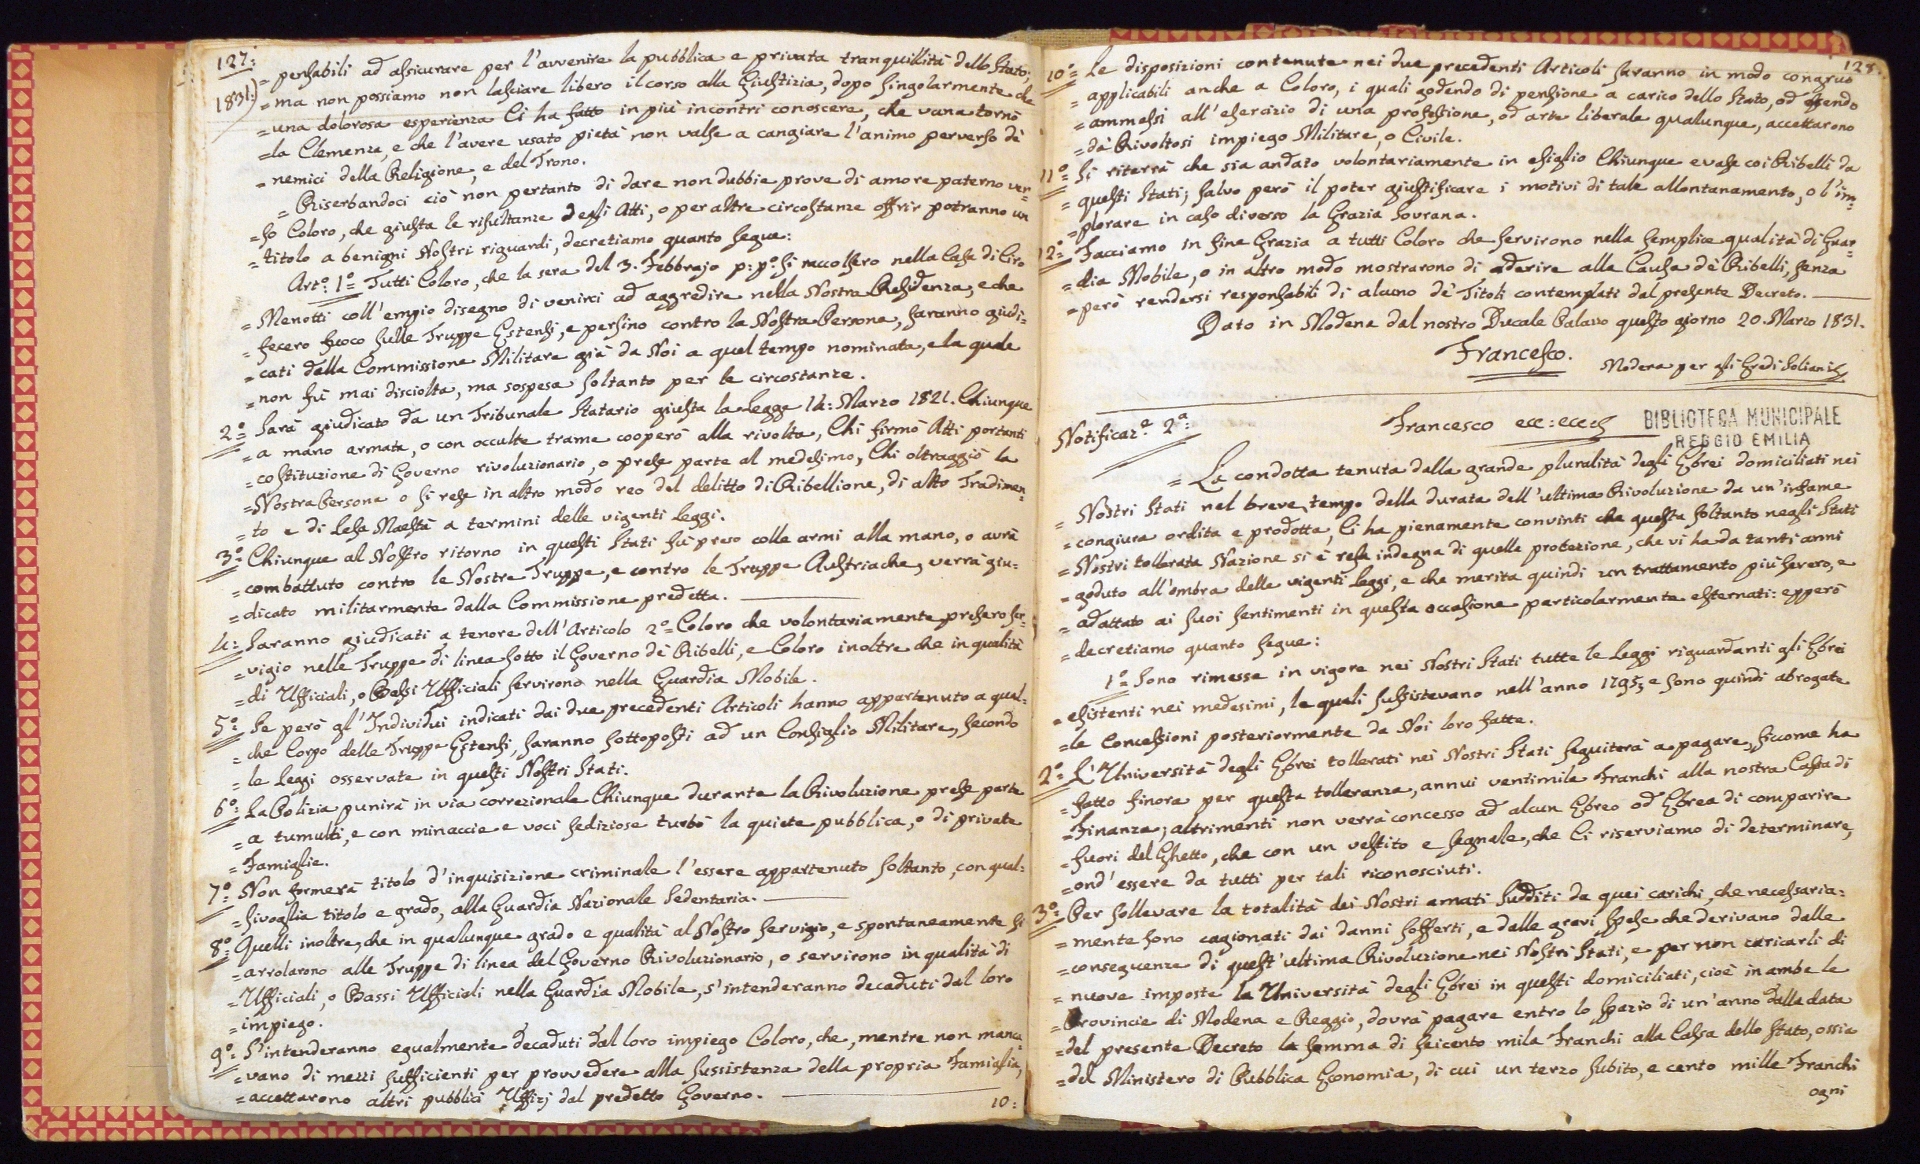 127:
1831:
= pensabili ad assicurare per l'avvenire la pubblica e privata tranquillità dello Stato;
= ma non possiamo non lasciare libero il corso alla Giustizia, dopo singolarmente che
= una dolorosa esperienza Ci ha fatto in più incontri conoscere, che vana tornò
= la Clemenza, e che l'avere usato pietà non valse a cangiare l'animo perverso dè
= nemici della Religione, e del Trono.
= Riserbandoci ciò non pertanto di dare non dubbie prove di amore paterno ver=
= so Coloro, che giusta le risultanze degli Atti, o per altre circostanze offrir potranno un
= titolo a benigni Nostri riguardi, decretiamo quanto segue:
Arto: 1º= Tutti Coloro, che la sera del 3. Febbrajo p: pº: si raccolsero nella Casa di Ciro
= Menotti coll'empio disegno di venirci ad aggredire nella Nostra Residenza, e che
= fecero fuoco sulle Truppe Estensi, e persino contro la Nostra Persona, saranno giudi=
= cati dalla Commissione Militare già da Noi a quel tempo nominata, e la quale
= non fù mai disciolta, ma sospesa soltanto per le circostanze.
2º= Sarà giudicato da un Tribunale Statario giusta la Legge 14: Marzo 1821. Chiunque
= a mano armata, o con occulte trame cooperò alla rivolta, Chi firmò Atti portanti
= costituzione di Governo rivoluzionario, o prese parte al medesimo, Chi oltraggiò la
= Nostra Persona o si rese in altro modo reo del delitto di Ribellione, di alto Tradimen=
= to e di Lesa Maestà a termini delle vigenti Leggi.
3º= Chiunque al Nostro ritorno in questi Stati fù preso colle armi alla mano, o avrà
= combattuto contro le Nostre Truppe, e contro le Truppe Austriache, verrà giu=
= dicato militarmente dalla Commissione predetta.
4:= Saranno giudicati a tenore dell'Articolo 2º= Coloro che volontariamente presero ser=
= vigio nelle Truppe di linea sotto il Governo dè Ribelli, e Coloro inoltre che in qualità
= di Ufficiali, o Bassi Ufficiali servirono nella Guardia Mobile.
5º= Se però gl'Individui indicati dai due precedenti Articoli hanno appartenuto a qual=
= che Corpo delle Truppe Estensi, saranno sottoposti ad un Consiglio Militare, secondo
= le Leggi osservate in questi Nostri Stati.
6º= La Polizia punirà in via correzionale Chiunque durante la Rivoluzione prese parte
= a tumulti, e con minaccie e voci sediziose turbò la quiete pubblica, o di private
= Famiglie.
7º= Non formerà titolo d'inquisizione criminale l'essere appartenuto soltanto, con qual=
= sivoglia titolo e grado, alla Guardia Nazionale Sedentaria.
8º= Quelli inoltre, che in qualunque grado e qualità al Nostro servigio, e spontaneamente si
= arrolarono alle Truppe di linea del Governo Rivoluzionario, o servirono in qualità di
= Ufficiali, o Bassi Ufficiali nella Guardia Mobile, s'intenderanno decaduti dal loro
= impiego.
9º= S'intenderanno egualmente decaduti dal loro impiego Coloro, che, mentre non manca=
= vano di mezzi sufficienti per provvedere alla sussistenza della propria Famiglia,
= accettarono altri pubblici Uffizj dal predetto Governo.
10:
128.
10º= Le disposizioni contenute nei due precedenti Articoli saranno in modo congruo
= applicabili anche a Coloro, i quali godendo di pensione a carico dello Stato, od essendo
= ammessi all'esercizio di una professione, od arte liberale qualunque, accettarono
= dà Rivoltosi impiego Militare, o Civile.
11º= Si riterrà che sia andato volontariamente in esiglio Chiunque evase coi Ribelli da
= questi Stati; salvo però il poter giustificare i motivi di tale allontanamento, o l'im=
= plorare in caso diverso la Grazia Sovrana.
12º= Facciamo in fine Grazia a tutti Coloro che servirono nella semplice qualità di Guar=
= dia Mobile, o in altro modo mostrarono di aderire alla Causa dè Ribelli, senza
= però rendersi responsabili di alcuno dè Titoli contemplati dal presente Decreto.
Dato in Modena dal nostro Ducale Palazzo questo giorno 20. Marzo 1831.
Francesco.
Modena per gli Eredi Soliani
Notificazª. 2ª:
Francesco ecc: ecc:
BIBLIOTECA MUNICIPALE
REGGIO EMILIA
= La condotta tenuta dalla grande pluralità degli Ebrei domiciliati nei
= Nostri Stati nel breve tempo della durata dell'ultima Rivoluzione da un'infame
= congiura ordita e prodotta, Ci ha pienamente convinti che questa soltanto negli Stati
= Nostri tollerata Nazione si è resa indegna di quella protezione, che vi ha da tanti anni
= goduto all'ombra delle vigenti Leggi, e che merita quindi un trattamento più severo, e
= adattato ai suoi sentimenti in questa occasione particolarmente esternati: epperò
= decretiamo quanto segue:
1º= Sono rimesse in vigore nei Nostri Stati tutte le Leggi riguardanti gli Ebrei
= esistenti nei medesimi, le quali sussistevano nell'anno 1795, e sono quindi abrogate
= le Concessioni posteriormente da Noi loro fatte.
2º= L'Università degli Ebrei tollerati nei Nostri Stati seguiterà a pagare, siccome ha
= fatto finora per questa tolleranza, annui ventimila Franchi alla nostra Cassa di
= Finanza; altrimenti non verrà concesso ad alcun Ebreo od Ebrea di comparire
= fuori del Ghetto, che con un vestito e segnale, che Ci riserviamo di determinare,
= ond'essere da tutti per tali riconosciuti.
3º= Per sollevare la totalità dei Nostri amati Sudditi da quei carichi, che necessaria=
= mente sono cagionati dai danni sofferti, e dalle gravi spese che derivano dalle
= conseguenze di quest'ultima Rivoluzione nei Nostri Stati, e per non caricarli di
= nuove imposte la Università degli Ebrei in questi domiciliati, cioè in ambe le
= Provincie di Modena e Reggio, dovrà pagare entro lo spazio di un'anno dalla data
= del presente Decreto la somma di seicento mila Franchi alla Cassa dello Stato, ossia
= del Ministero di Pubblica Economia, di cui un terzo subito, e cento mille Franchi
ogni